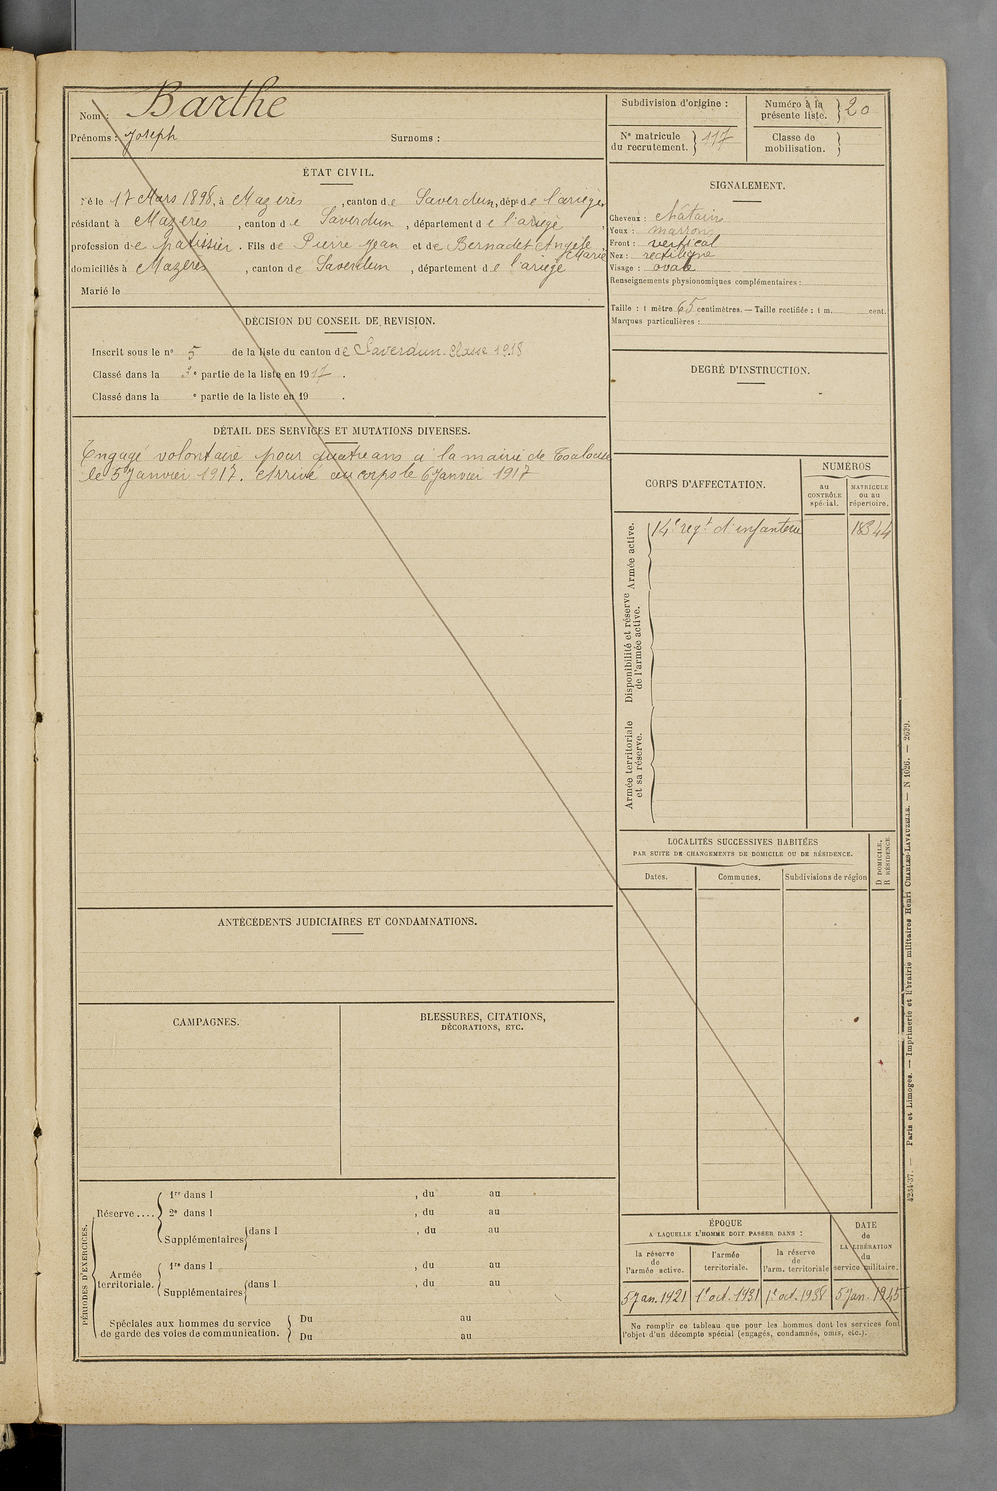 Nom : Barthe
Prénoms : Joseph Surnoms :
Subdivision d'origine :
Numéro à la présente liste. } 20
N° matricule du recrutement. } 117
Classe de mobilisation. }
ÉTAT CIVIL.
Né le 17 Mars 1898, à Mazères, canton de Saverdun, dépt de l'ariège,
résidant à Mazères, canton de Saverdun, département de l'ariège,
profession de patissier. Fils de Pierre Jean et de Bernadet Angèle Marie
domiciliés à Mazères, canton de Saverdun, département de l'ariège
Marié le
SIGNALEMENT.
Cheveux : châtains
Yeux : marrons
Front : vertical
Nez : rectiligne
Visage : ovale
Renseignements physionomiques complémentaires :
Taille : 1 mètre 65 centimètres. — Taille rectifiée : 1 m. cent.
Marques particulières :
DÉCISION DU CONSEIL DE REVISION.
Inscrit sous le n° 5 de la liste du canton de Saverdun. Classe 1918
Classé dans la 3e partie de la liste en 1917.
Classé dans la e partie de la liste en 19 .
DEGRÉ D'INSTRUCTION.
DÉTAIL DES SERVICES ET MUTATIONS DIVERSES.
Engagé volontaire pour quatre ans a la mairie de Toulouse
le 5 Janvier 1917. Arrivé au corps le 6 Janvier 1917
CORPS D'AFFECTATION.
NUMÉROS
au CONTRÔLE spécial.
MATRICULE ou au répertoire.
Armée active.
14e regt d'infanterie
Disponibilité et réserve de l'armée active.
Armée territoriale et sa réserve.
LOCALITÉS SUCCESSIVES HABITÉES
PAR SUITE DE CHANGEMENTS DE DOMICILE OU DE RÉSIDENCE.
Dates. Communes. Subdivisions de région
D DOMICILE.
R RÉSIDENCE
ANTÉCÉDENTS JUDICIAIRES ET CONDAMNATIONS.
CAMPAGNES.
BLESSURES, CITATIONS,
DÉCORATIONS, ETC.
PÉRIODES D'EXERCICES.
Réserve .... 1re dans l , du au
2e dans l , du au
Supplémentaires dans l , du au
Armée territoriale. 1re dans l , du au
Supplémentaires dans l , du au
Spéciales aux hommes du service de garde des voies de communication. Du au
Du au
ÉPOQUE
A LAQUELLE L'HOMME DOIT PASSER DANS :
la réserve de l'armée active.
l'armée territoriale.
la réserve de l'arm. territoriale
DATE de LA LIBÉRATION du service militaire.
5 Jan. 1921 1e oct. 1931 1e oct. 1938 5 Jan. 1945
Ne remplir ce tableau que pour les hommes dont les services font
l'objet d'un décompte spécial (engagés, condamnés, omis, etc.).
Paris et Limoges. — Imprimerie et librairie militaires Henri CHARLES-LAVAUZELLE. — N 1026. — 2629.